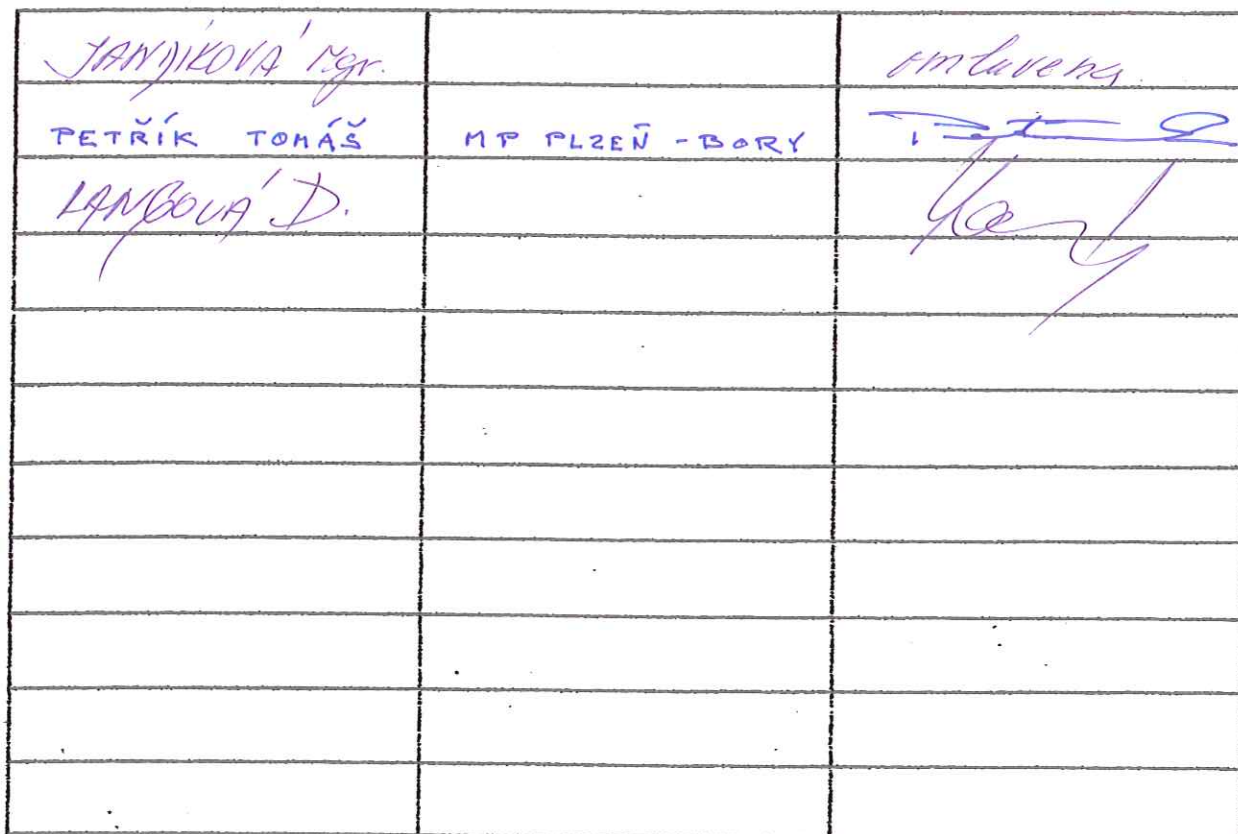 JANDÍKOVÁ Mgr. omluvena
PETŘÍK TOMÁŠ MP PLZEŇ - BORY
LANGOVÁ D.